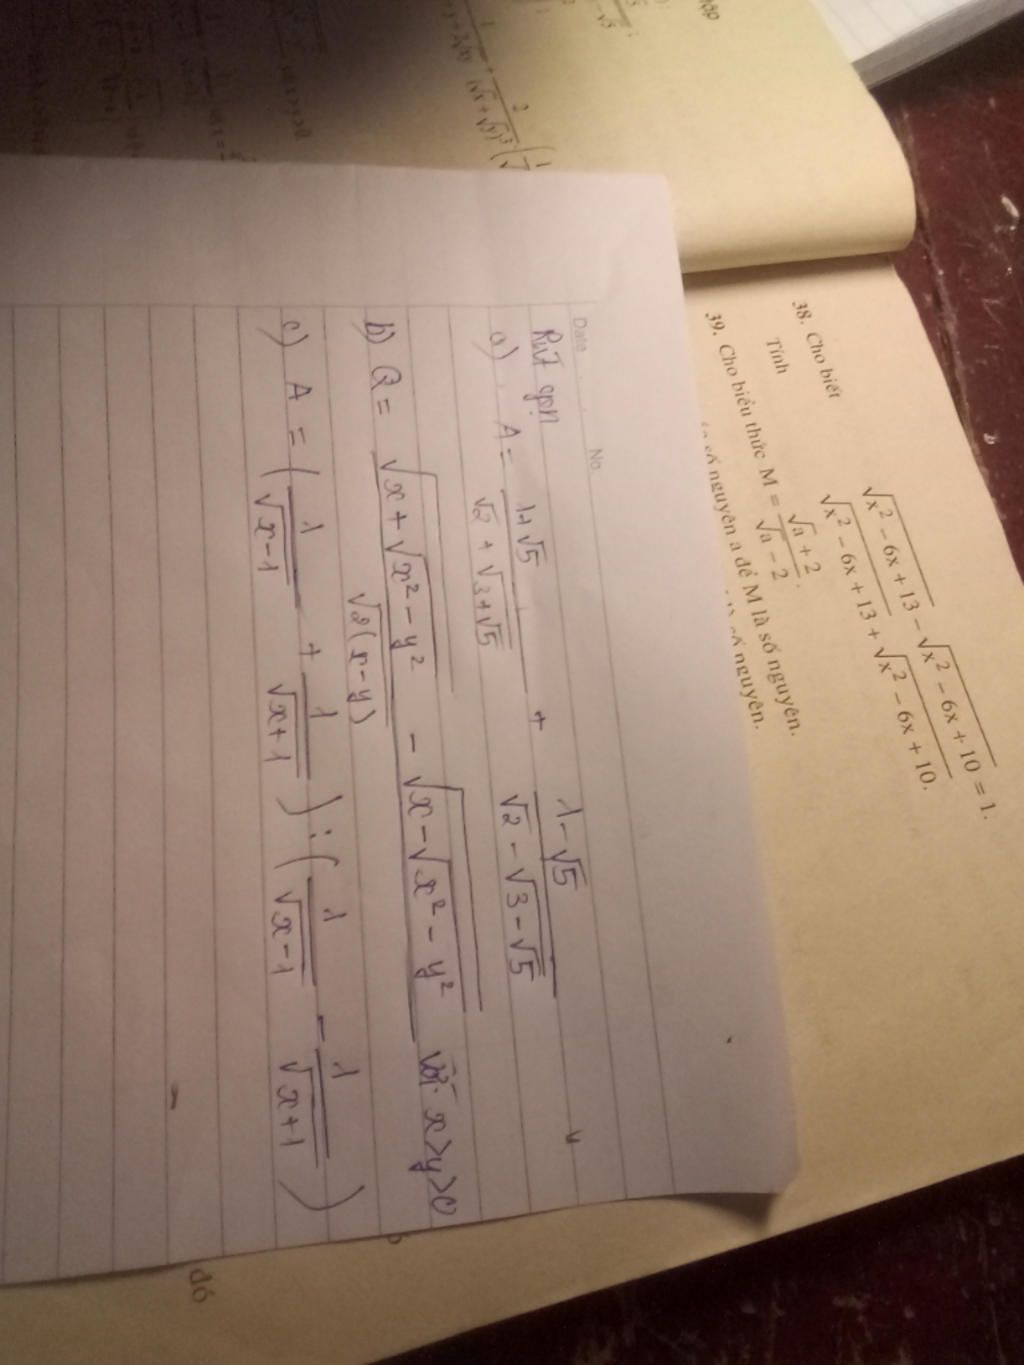 tập
38. Cho biết
√(x² − 6x + 13) − √(x² − 6x + 10) = 1.
Tính
√(x² − 6x + 13) + √(x² − 6x + 10).
39. Cho biểu thức M = (√a + 2)/(√a − 2).
số nguyên a để M là số nguyên.
Date No.
Rút gọn
a) A = (1+√5)/(√2 + √(3+√5)) + (1−√5)/(√2 − √(3−√5))
b) Q = (√(x+√(x²−y²)) − √(x−√(x²−y²)))/√(2(x−y)) với x>y>0
c) A = (1/√(x−1) + 1/√(x+1)) : (1/√(x−1) − 1/√(x+1))
đó